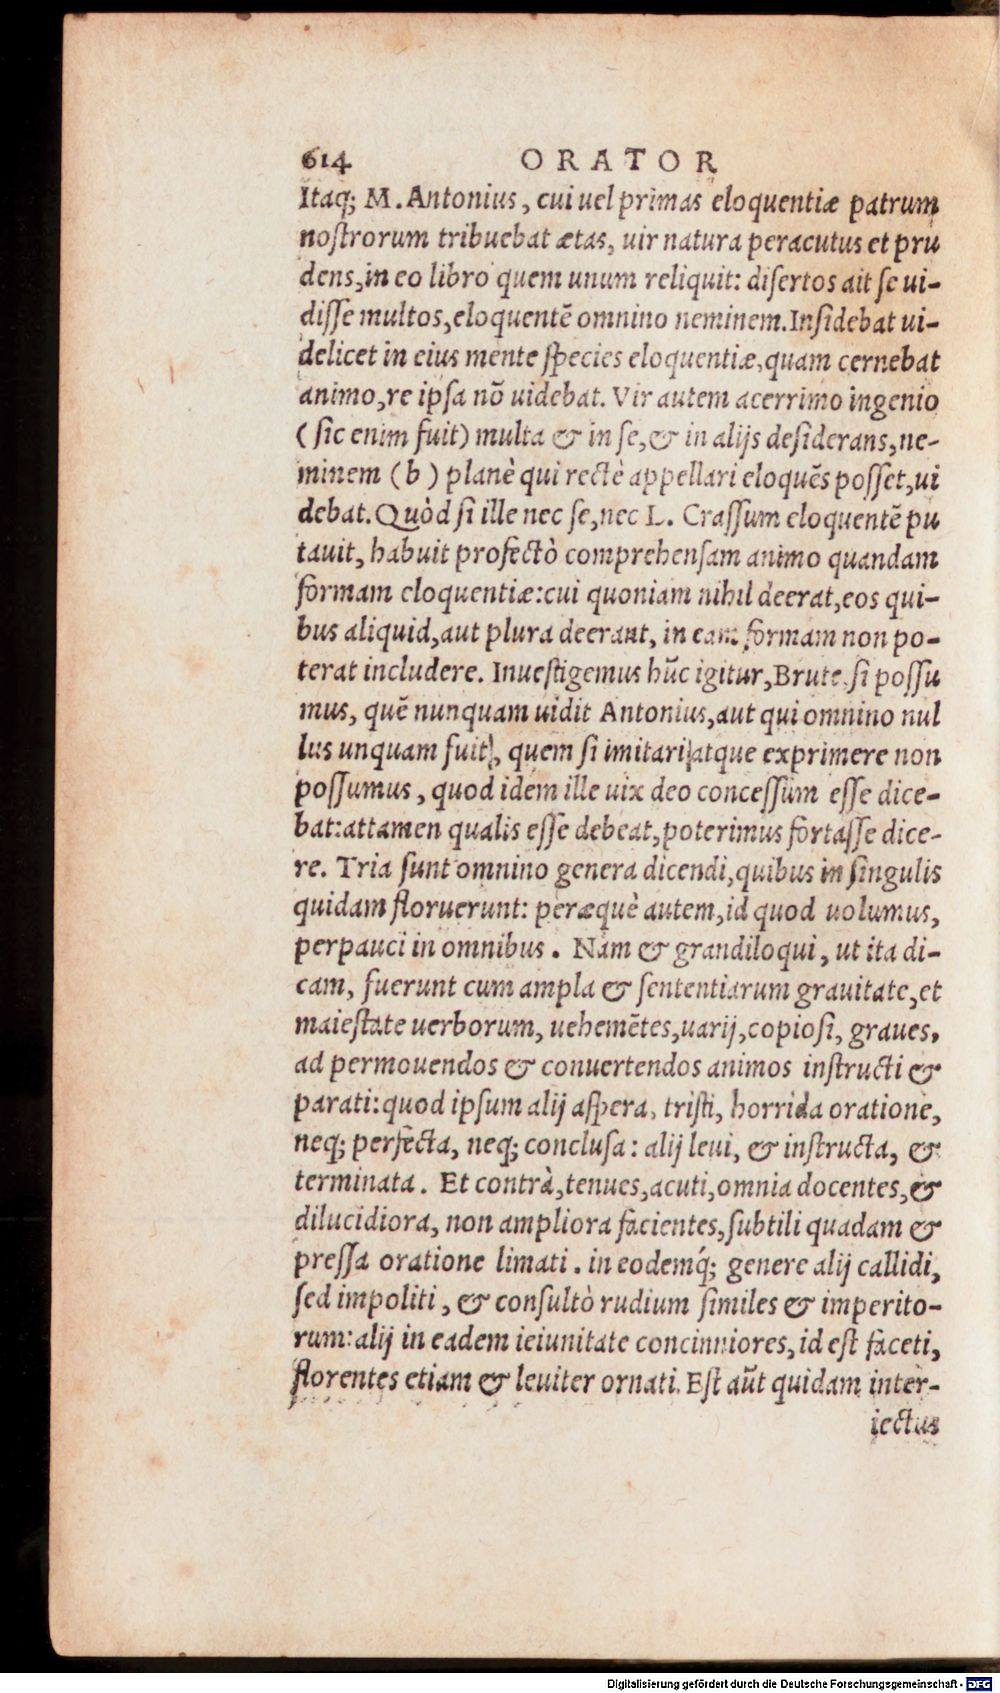 614 ORATOR
Itaq; M. Antonius, cui uel primas eloquentiæ patrum
nostrorum tribuebat ætas, uir natura peracutus et pru
dens, in eo libro quem unum reliquit: disertos ait se ui-
disse multos, eloquentē omnino neminem. Insidebat ui-
delicet in eius mente species eloquentiæ, quam cernebat
animo, re ipsa nō uidebat. Vir autem acerrimo ingenio
(sic enim fuit) multa & in se, & in alijs desiderans, ne-
minem (b) planè qui rectè appellari eloquēs posset, ui
debat. Quòd si ille nec se, nec L. Crassum eloquentē pu
tauit, habuit profectò comprehensam animo quandam
formam eloquentiæ: cui quoniam nihil deerat, eos qui-
bus aliquid, aut plura deerant, in eam formam non po-
terat includere. Inuestigemus hūc igitur, Brute, si possu
mus, quē nunquam uidit Antonius, aut qui omnino nul
lus unquam fuit, quem si imitari atque exprimere non
possumus, quod idem ille uix deo concessum esse dice-
bat: attamen qualis esse debeat, poterimus fortasse dice-
re. Tria sunt omnino genera dicendi, quibus in singulis
quidam floruerunt: peræquè autem, id quod uolumus,
perpauci in omnibus. Nam & grandiloqui, ut ita di-
cam, fuerunt cum ampla & sententiarum grauitate, et
maiestate uerborum, uehemētes, uarij, copiosi, graues,
ad permouendos & conuertendos animos instructi &
parati: quod ipsum alij aspera, tristi, horrida oratione,
neq; perfecta, neq; conclusa: alij leui, & instructa, &
terminata. Et contrà, tenues, acuti, omnia docentes, &
dilucidiora, non ampliora facientes, subtili quadam &
pressa oratione limati. in eodemq́; genere alij callidi,
sed impoliti, & consultò rudium similes & imperito-
rum: alij in eadem ieiunitate concinniores, id est faceti,
florentes etiam & leuiter ornati. Est aūt quidam inter-
iectus
Digitalisierung gefördert durch die Deutsche Forschungsgemeinschaft - DFG